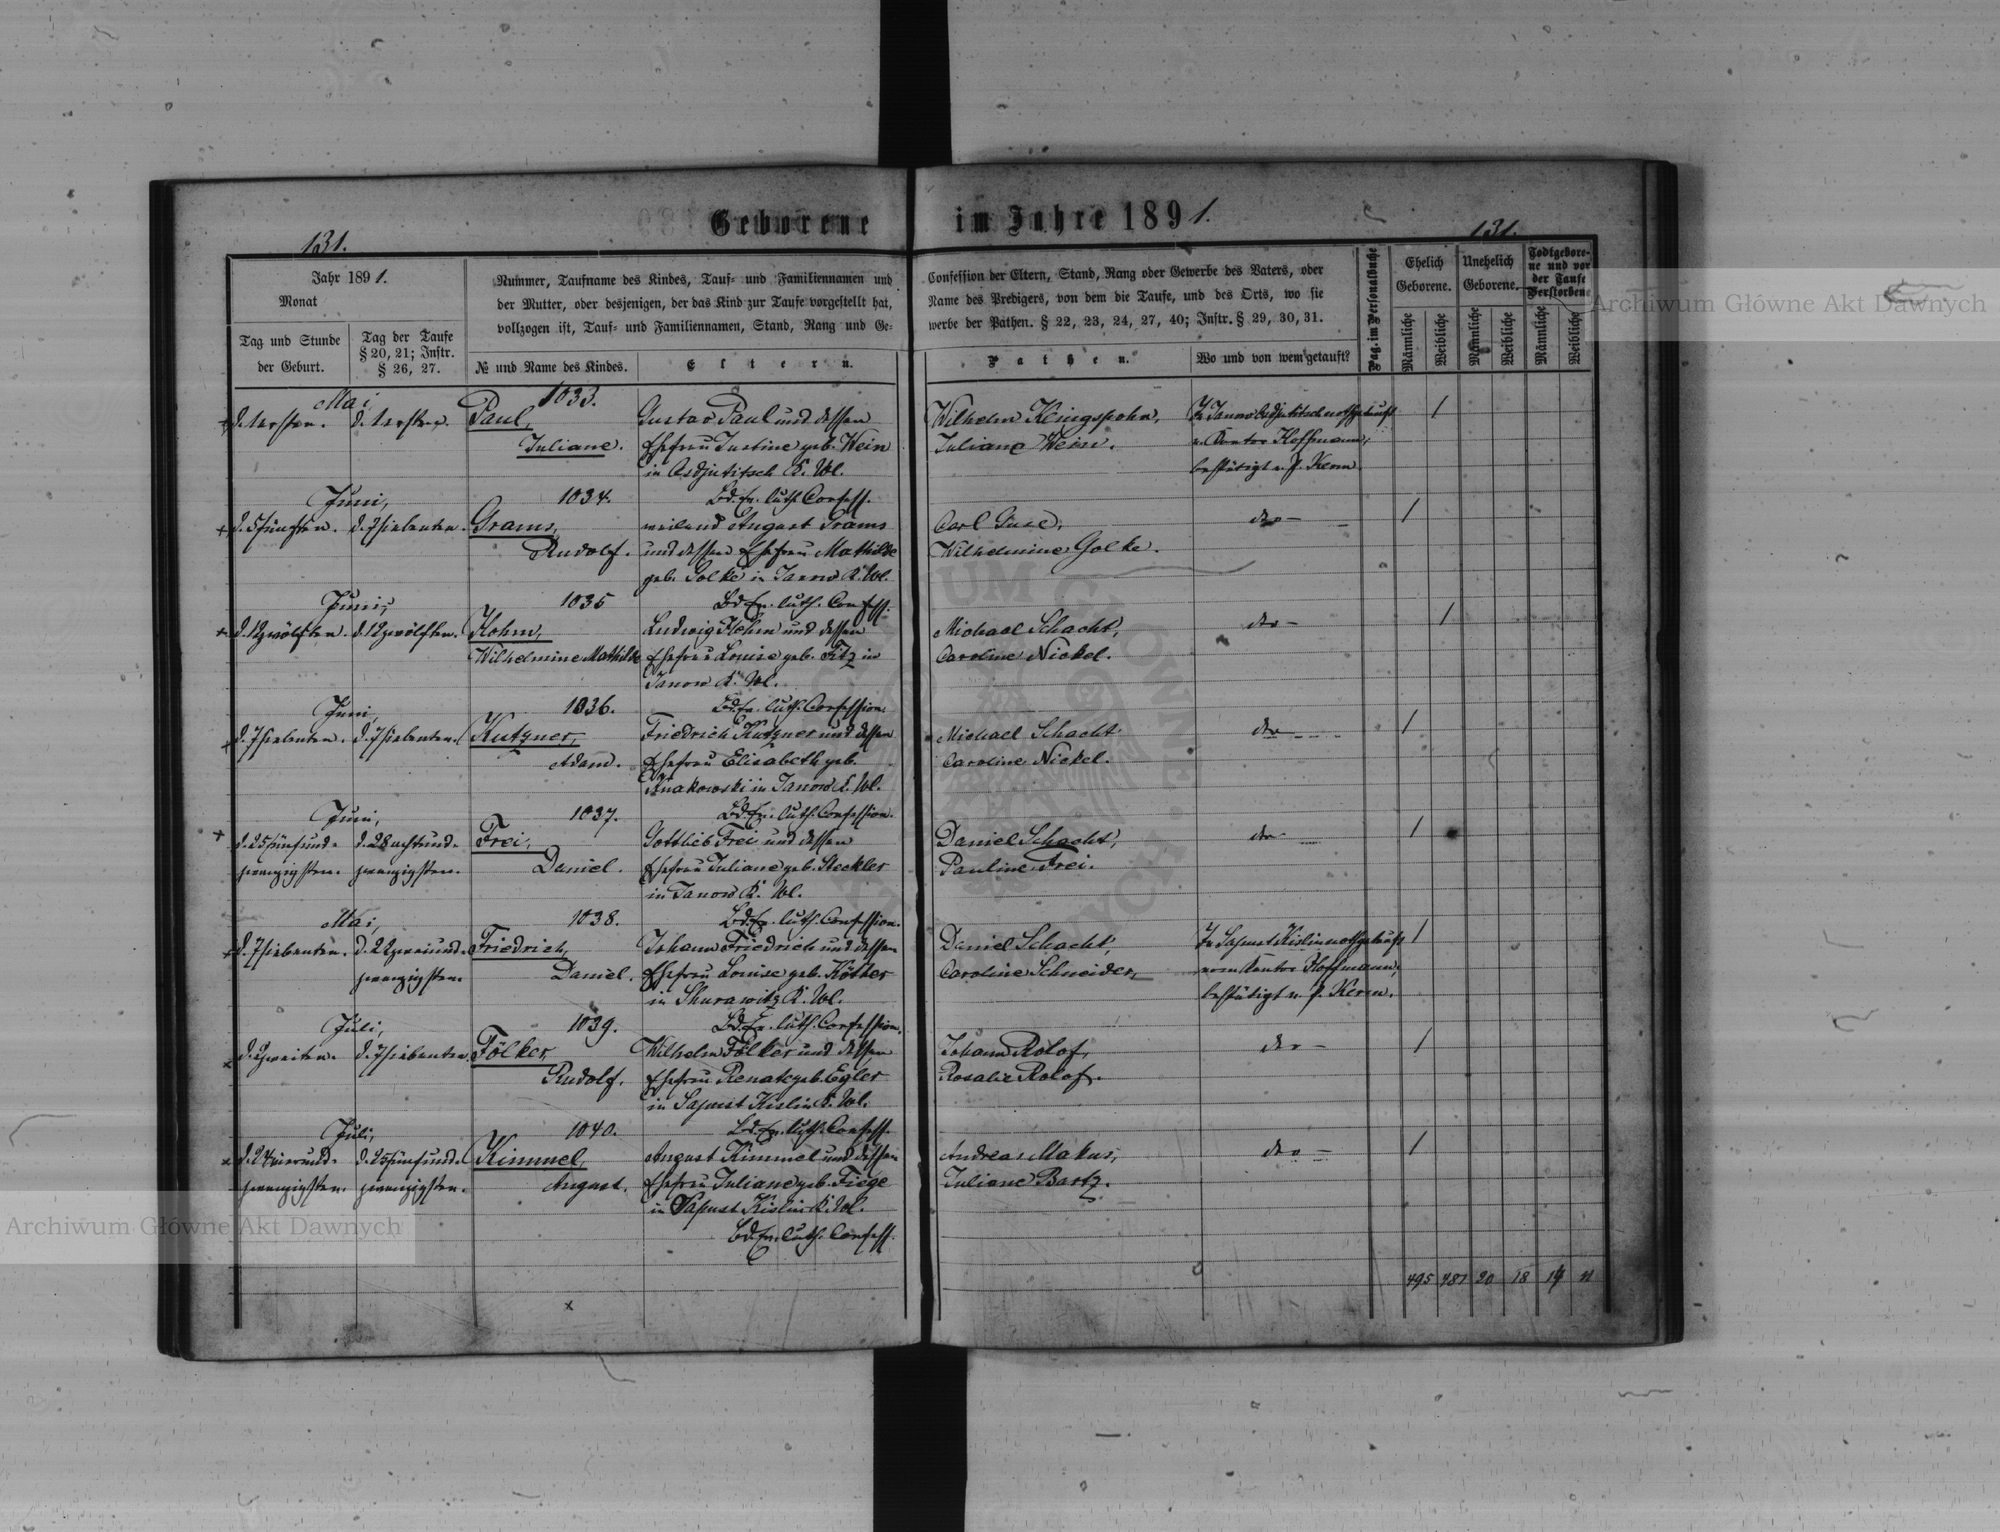 Geborene im Jahre 1891.
131.
131.
Jahr 1891.
Monat
Tag und Stunde der Geburt.
Tag der Taufe § 20, 21; Instr. § 26, 27.
Nummer, Taufname des Kindes, Tauf- und Familiennamen und
der Mutter, oder desjenigen, der das Kind zur Taufe vorgestellt hat,
vollzogen ist, Tauf- und Familiennamen, Stand, Rang und Ge-
№ und Name des Kindes.
Eltern.
Confession der Eltern, Stand, Rang oder Gewerbe des Vaters, oder
Name des Predigers, von dem die Taufe, und des Orts, wo sie
werbe der Pathen. § 22, 23, 24, 27, 40; Instr. § 29, 30, 31.
Pathen.
Wo und von wem getauft?
Pag. im Personalbuche
Ehelich Geborene.
Unehelich Geborene.
Todtgebore-
ne und vor
der Taufe
Verstorbene
Männliche
Weibliche
Männliche
Weibliche
Männliche
Weibliche
Mai
1033.
d. 1 ersten. d. 1 ersten. Paul, Gustav Paul und dessen Wilhelm Klingspohn,
Juliane. Ehefrau Justine geb. Wein Juliane Wein. v. Cantor Hoffmann,
K. Wl. bestätigt v. P. Kern.
Juni, 1034. Bd. Ev. luth. Confess.
d. 5 fünften. d. 7 siebenten. Grams, weiland August Grams Carl
Rudolf. und dessen Ehefrau Mathilde Wilhelmine Golke.
geb. Golke in Janow K. Wl.
Juni, 1035 Bd. Ev. luth. Confess.
d. 12 zwölften. d. 12 zwölften. Hohm, Ludwig Hohm und dessen Michael Schacht,
Wilhelmine Mathilde Ehefrau Louise geb. Fitz in Caroline Nickel.
Janow K. Wl.
Juni, 1036. Bd. Ev. luth. Confession.
d. 7 siebenten. d. 7 siebenten. Kutzner, Friedrich Kutzner und dessen Michael Schacht
Adam. Ehefrau Elisabeth geb. Caroline Nickel.
in Janow K. Wl.
Juni, 1037. Bd. Ev. luth. Confession.
d. 25 fünfund- d. 28 achtund- Frei, Gottlieb Frei und dessen Daniel Schacht,
zwanzigsten. zwanzigsten. Daniel. Ehefrau Juliane geb. Steckler Pauline Frei.
in Janow K. Wl.
Mai, 1038. Bd. Ev. luth. Confession.
d. 7 siebenten. d. 22 zweiund- Friedrich, Johann Friedrich und dessen Daniel Schacht,
zwanzigsten Daniel. Ehefrau Louise geb. Köther Caroline Schneider, vom Cantor Hoffmann;
in Shurawitz K. Wl. bestätigt v. P. Kern.
Juli, 1039. Bd. Ev. luth. Confession.
d. 2 zweiten. d. 7 siebenten. Fölker, Wilhelm Fölker und dessen Johann Rolof,
Rudolf. Ehefrau Renate geb. Egler Rosalie Rolof.
in Sapust Kislin K. Wl.
Juli, 1040. Bd. Ev. luth. Confess.
d. 24 vierund- d. 25 fünfund- Kimmel, August Kimmel und dessen Andreas Makus,
zwanzigsten. zwanzigsten. August. Ehefrau Juliane geb. Fiege Juliane Bartz.
in Sapust Kislin K. Wl.
Bd. Ev. luth. Confess.
20 18
Archiwum Główne Akt Dawnych
Archiwum Główne Akt Dawnych